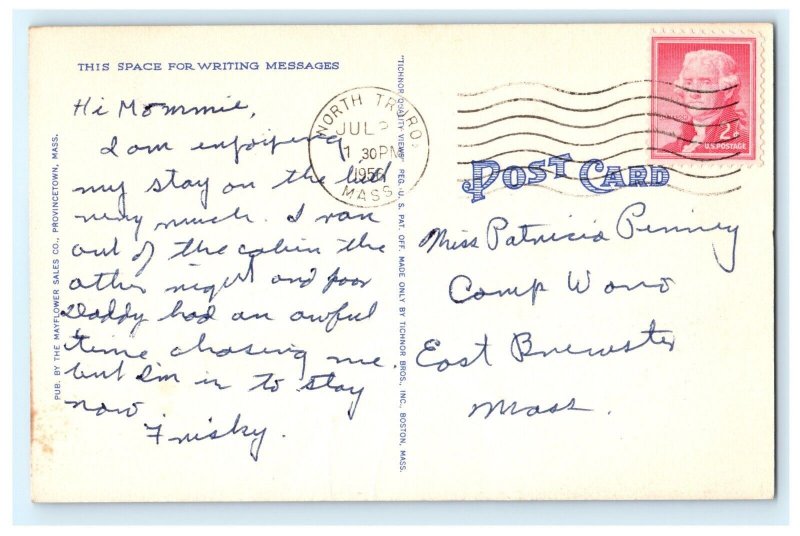 THIS SPACE FOR WRITING MESSAGES
Hi Mommie,
I am enjoying
my stay on the bed
very much. I ran
out of the cabin the
other night and poor
Daddy had an awful
time chasing me
but I'm in to stay
now
Frisky.
PUB. BY THE MAYFLOWER SALES CO., PROVINCETOWN, MASS.
"TICHNOR QUALITY VIEWS" REG. U. S. PAT. OFF. MADE ONLY BY TICHNOR BROS., INC., BOSTON, MASS.
NORTH TRURO
JUL
1 30PM
1956
MASS.
2¢
U.S. POSTAGE
POST CARD
Miss Patricia Penney
Camp Wono
East Brewster
Mass.